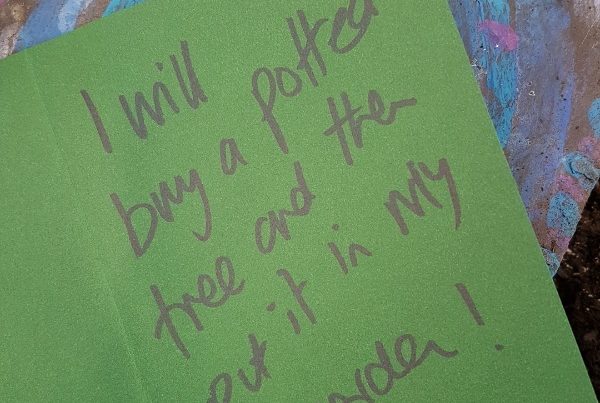 I will
buy a potted
tree and then
put it in My
garden!